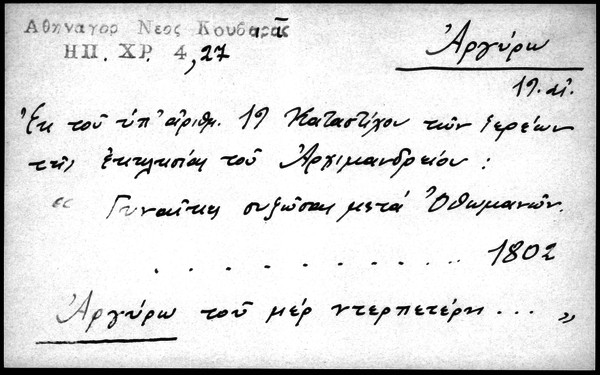 Αθηναγορ Νεος Κουβαρᾶς
ΗΠ. ΧΡ. 4, 27
Ἀργύρω
19. αἰ.
Ἐκ τοῦ ὑπ' ἀριθμ. 19 Καταστίχου τῶν ἱερέων
τῆς ἐκκλησίας τοῦ Ἀρχιμανδρείου :
“ Γυναῖκες συζῶσαι μετά Ὀθωμανῶν.
. . . . . . . . . . . 1802
Ἀργύρω τοῦ μέρ ντερπετέρη . . . ”